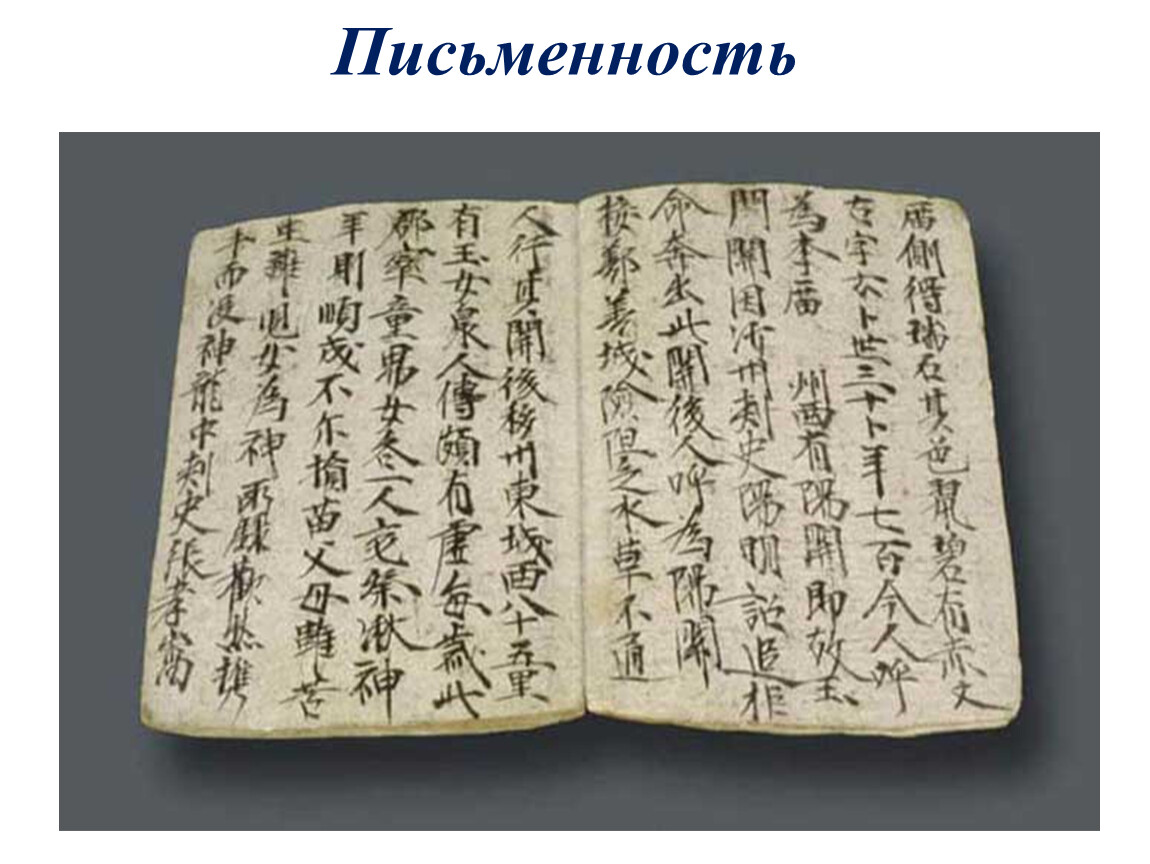 Письменность
庿側得瑞石其色翠碧有赤文
古字云卜世三十卜年七百今人呼
為李庿 州西有陽關即故玉
門關因沙州刾史陽明詔追拒
命奔出此關後人呼為陽關
接鄯善城險阻乏水草不通
人行其關後移州東城西八十五里
有玉女泉人傳頗有虛每歲此
郡率童男女一人充祭湫神
年則順成不尒損苗父母雖苦
生離兒女為神所錄歡然攜
手而沒神龍中刾史張孝嵩